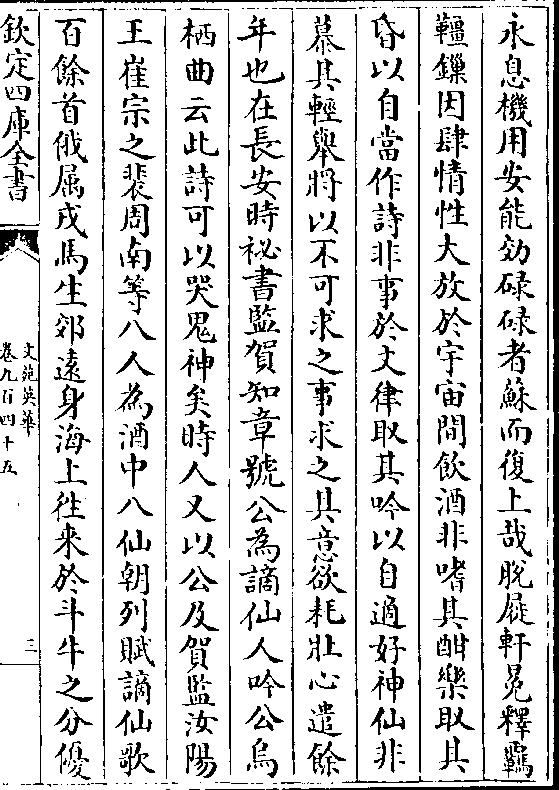 永息機用安能効碌碌者蘇而復上哉脫屣軒冕釋羈
韁鏁因肆情性大放於宇宙間飲酒非嗜其酣樂取其
昏以自當作詩非事於文律取其吟以自適好神仙非
慕其輕舉將以不可求之事求之其意欲耗壯心遣餘
年也在長安時祕書監賀知章號公為謫仙人吟公烏
栖曲云此詩可以哭鬼神矣時人又以公及賀監汝陽
王崔宗之裴周南等八人為酒中八仙朝列賦謫仙歌
百餘首俄属戎馬生郊遠身海上往來於斗牛之分優
欽定四庫全書
文苑英華
卷九百四十五
三